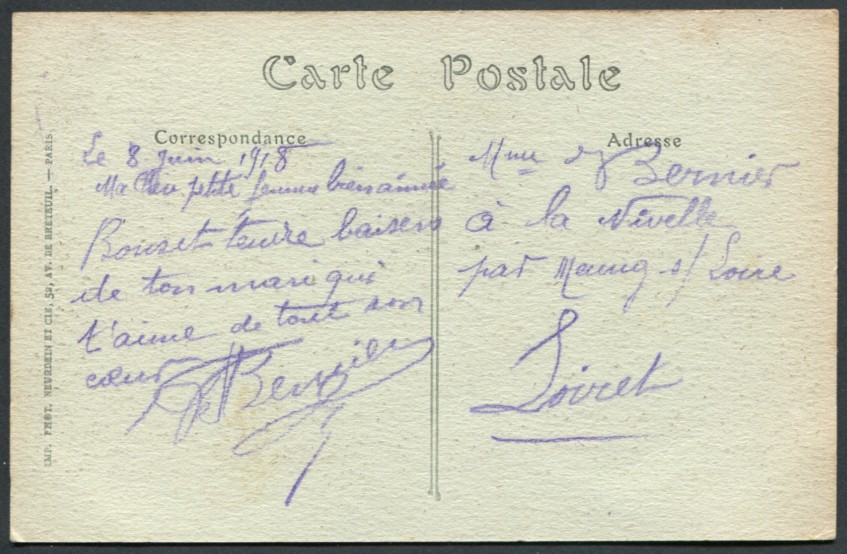 Carte Postale
Correspondance
Le 8 Juin 1918
Ma chère petite femme bien aimée
Bons et tendre baisers
de ton mari qui
t'aime de tout son
cœur
Bernier
Adresse
Mme Bernier
à la Nivelle
par Meung s/ Loire
Loiret
IMP. PHOT. NEURDEIN ET CIE, 52, AV. DE BRETEUIL. — PARIS